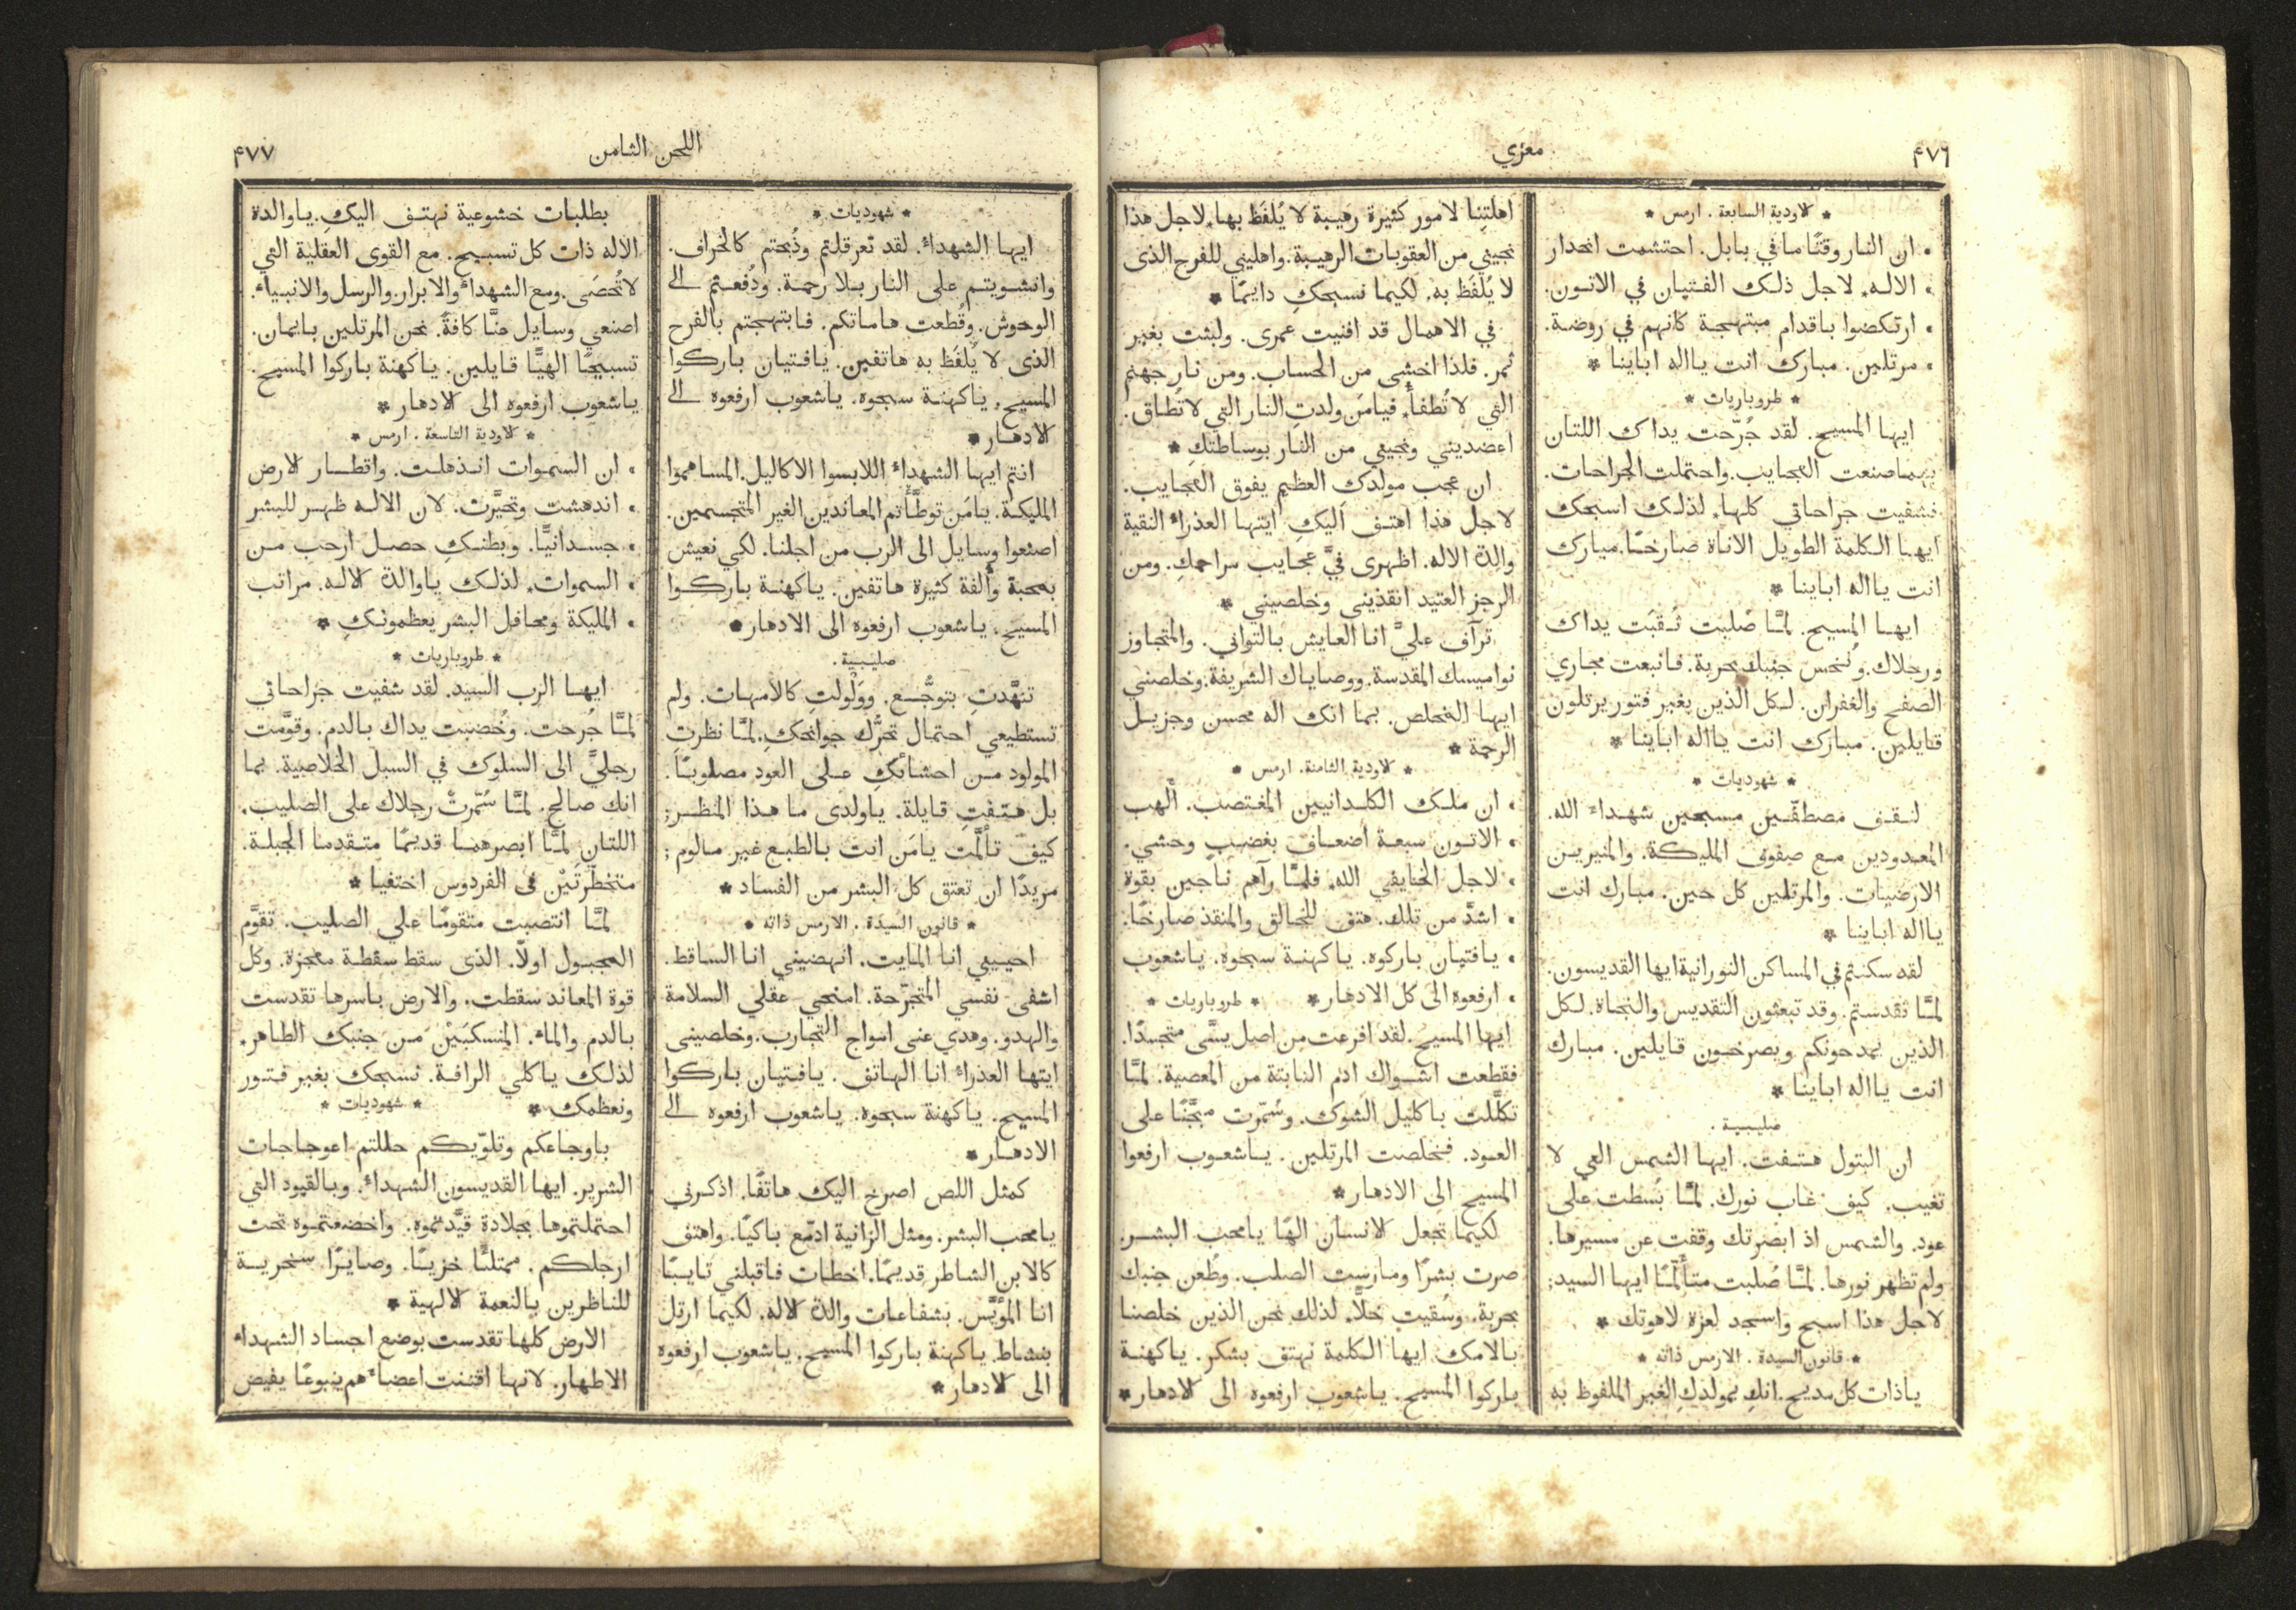 ٤٧٦
معزي
* لاودية السابعة . ارمس *
• ان النار وقتًا ما في بابل. احتشمت انحدار
• الاله. لاجل ذلك الفتيان في الاتون.
• ارتكضوا باقدام مبتهجة كانهم في روضة.
• مرتلين. مبارك انت يااله اباينا *
* طروباريات *
ايها المسيح. لقد جُرّحت يداك اللتان
بهما صنعت العجايب. واحتملت الجراحات.
فشفيت جراحاتي كلها. لذلك اسبحك
ايها الكلمة الطويل الاناة صارخًا. مبارك
انت يااله اباينا *
ايها المسيح. لمَّا صُلبت ثُقبَت يداك
ورجلاك. ونُخس جنبك بحربة. فانبعت مجاري
الصفح والغفران. لكل الذين بغير فتور يرتلون
قايلين. مبارك انت يااله اباينا *
* شهوديات *
لنقف مصطفّين مسبحين شهداء الله.
المعدودين مع صفوف المليكة. والمنيرين
الارضيات. والمرتلين كل حين. مبارك انت
يااله اباينا *
لقد سكنتم في المساكن النورانية ايها القديسون.
لمَّا تقدستم. وقد تبعثون التقديس والنجاة. لكل
الذين يمدحونكم ويصرخون قايلين. مبارك
انت يااله اباينا *
صليبية .
ان البتول هتفت. ايها الشمس التي لا
تغيب. كيف غاب نورك. لمَّا بُسطت على
عود. والشمس اذ ابصرتك وقفت عن مسيرها.
ولم تظهر نورها. لمَّا صُلبت متألّمًا ايها السيد:
لاجل هذا اسبح واسجد لعزة لاهوتك *
* قانون السيدة . الارمس ذاته *
ياذات كل مديح. انكِ بمولدكِ الغير الملفوظ به
اهلتِنا لامور كثيرة رهيبة لا يُلفَظ بها. لاجل هذا
نجيني من العقوبات الرهيبة. واهليني للفرح الذى
لا يُلفَظ به. لكيما نسبحكِ دايمًا *
في الاهمال قد افنيت عمرى. ولبثت بغير
ثمر. فلذا اخشى من الحساب. ومن نار جهنم
التي لا تُطفأ. فيامَن ولدتِ النار التي لا تُطاق.
اعضديني ونجيني من النار بوساطتكِ *
ان عجب مولدكِ العظيم يفوق العجايب.
لاجل هذا اهتف اليكِ ايتها العذراء النقية
والدة الاله. اظهرى فيَّ عجايب مراحمكِ. ومن
الرجز العتيد انقذيني وخلصيني *
ترآف عليَّ انا العايش بالتواني. والمتجاوز
نواميسك المقدسة. ووصاياك الشريفة. وخلصني
ايها المخلص. بما انك اله محسن وجزيل
الرحمة *
* لاودية الثامنة. ارمس *
• ان ملك الكلدانيين المغتصب. الهب
• الاتون سبعة اضعاف بغضبٍ وحشي.
• لاجل الخايفي الله. فلمَّا رآهم ناجين بقوة
• اشدَّ من تلك. هتف للخالق والمنقذ صارخًا.
• يافتيان باركوه. ياكهنة سبحوه. ياشعوب
• ارفعوه الى كل الادهار * * طروباريات *
ايها المسيح. لقد افرعت من اصل يسَّى متجسدًا.
فقطعت اشواك ادم النابتة من المعصية. لمَّا
تكلَّلت باكليل الشوك. وسُمّرت مجَّنًا على
العود. فخلصت المرتلين. ياشعوب ارفعوا
المسيح الى الادهار *
لكيما تجعل لانسان الهًا يامحب البشر.
صرت بشرًا ومارست الصلب. وطُعن جنبك
بحربة. وسُقيت خلًّا. لذلك نحن الذين خلصنا
بالامك ايها الكلمة نهتف بشكر. ياكهنة
باركوا المسيح. ياشعوب ارفعوه الى لادهار *
اللحن الثامن
٤٧٧
* شهوديات *
ايها الشهداء. لقد تعرقلتم وذُبحتم كالخراف.
وانشويتم على النار بلا رحمة. ودُفعتم الى
الوحوش. وقُطعت هاماتكم. فابتهجتم بالفرح
الذى لا يُلفَظ به هاتفين. يافتيان باركوا
المسيح. ياكهنة سبحوه. ياشعوب ارفعوه الى
لادهار *
انتم ايها الشهداء اللابسوا الاكاليل. المساهموا
المليكة. يامَن توطَّأتم المعاندين الغير المتجسمين.
اصنعوا وسايل الى الرب من اجلنا. لكي نعيش
بمحبة وأُلفة كثيرة هاتفين. ياكهنة باركوا
المسيح. ياشعوب ارفعوه الى الادهار *
صليبية .
تنهَّدتِ بتوجُّع. وولْولتِ كالامهات. ولم
تستطيعي احتمال تحرُّك جوانحكِ. لمَّا نظرتِ
المولود من احشائكِ على العود مصلوبًا.
بل هتفتِ قايلة. ياولدى ما هذا المنظر:
كيف تألَّمت يامَن انت بالطبع غير مالوم:
مريدًا ان تعتق كل البشر من الفساد *
* قانون السيدة . الارمس ذاته *
احييني انا المايت. انهضيني انا الساقط.
اشفى نفسي المتجرّحة. امنحي عقلي السلامة
والهدو. وهدي عني امواج التجارب. وخلصيني
ايتها العذراء انا الهاتف. يافتيان باركوا
المسيح. ياكهنة سبحوه. ياشعوب ارفعوه الى
الادهار *
كمثل اللص اصرخ اليك هاتفًا. اذكرني
يامحب البشر. ومثل الزانية ادمّع باكيًا. واهتف
كالابن الشاطر قديمًا. اخطات فاقبلني تايبًا
انا المؤيَّس. بشفاعات والدة لاله. لكيما ارتل
بنشاط. ياكهنة باركوا المسيح. ياشعوب ارفعوه
الى لادهار *
بطلبات خشوعية نهتف اليكِ. ياوالدة
الاله ذات كل تسبيح. مع القوى العقلية التي
لا تُحصَى. ومع الشهداء والابرار. والرسل والانبياء.
اصنعي وسايل عنَّا كافةً. نحن المرتلين بايمان.
تسبيحًا الهيًّا قايلين. ياكهنة باركوا المسيح.
ياشعوب ارفعوه الى لادهار *
* لاودية التاسعة . ارمس *
• ان السموات انذهلت. واقطار لارض
• اندهشت وتحيَّرت. لان الاله ظهر للبشر
• جسدانيًّا. وبطنكِ حصل ارحب من
• السموات. لذلك ياوالدة لاله. مراتب
• المليكة ومحافل البشر يعظمونكِ *
* طروباريات *
ايها الرب السيد. لقد شفيت جراحاتي
لمَّا جُرحت. وخُضبت يداك بالدم. وقوَّمت
رجليَّ الى السلوك في السبل الخلاصية. بما
انك صالح. لمَّا سُمّرتْ رجلاك على الصليب.
اللتانِ لمَّا ابصرهما قديمًا متقدمنا الجبلة.
متخطّرتَيْن فى الفردوس اختفيا *
لمَّا انتصبت متقومًا على الصليب. تقوَّم
المجبول اولًا. الذى سقط سقطة معجزة. وكل
قوة المعاند سقطت. والارض باسرها تقدست
بالدم والماء. المنسكبَيْن من جنبك الطاهر.
لذلك ياكلي الرافة. نسبحك بغير فتور
ونعظمك * * شهوديات *
باوجاعكم وتلوّيكم حللتم اعوجاجات
الشرير. ايها القديسون الشهداء. وبالقيود التي
احتملتموها بجلادةٍ قيَّدتموه. واخضعتموه تحت
ارجلكم. ممتلئًا خزيًا. وصايرًا سخرية
للناظرين بالنعمة لالهية *
الارض كلها تقدست بوضع اجساد الشهداء
الاطهار. لانها اقتنت اعضاءهم ينبوعًا يفيض